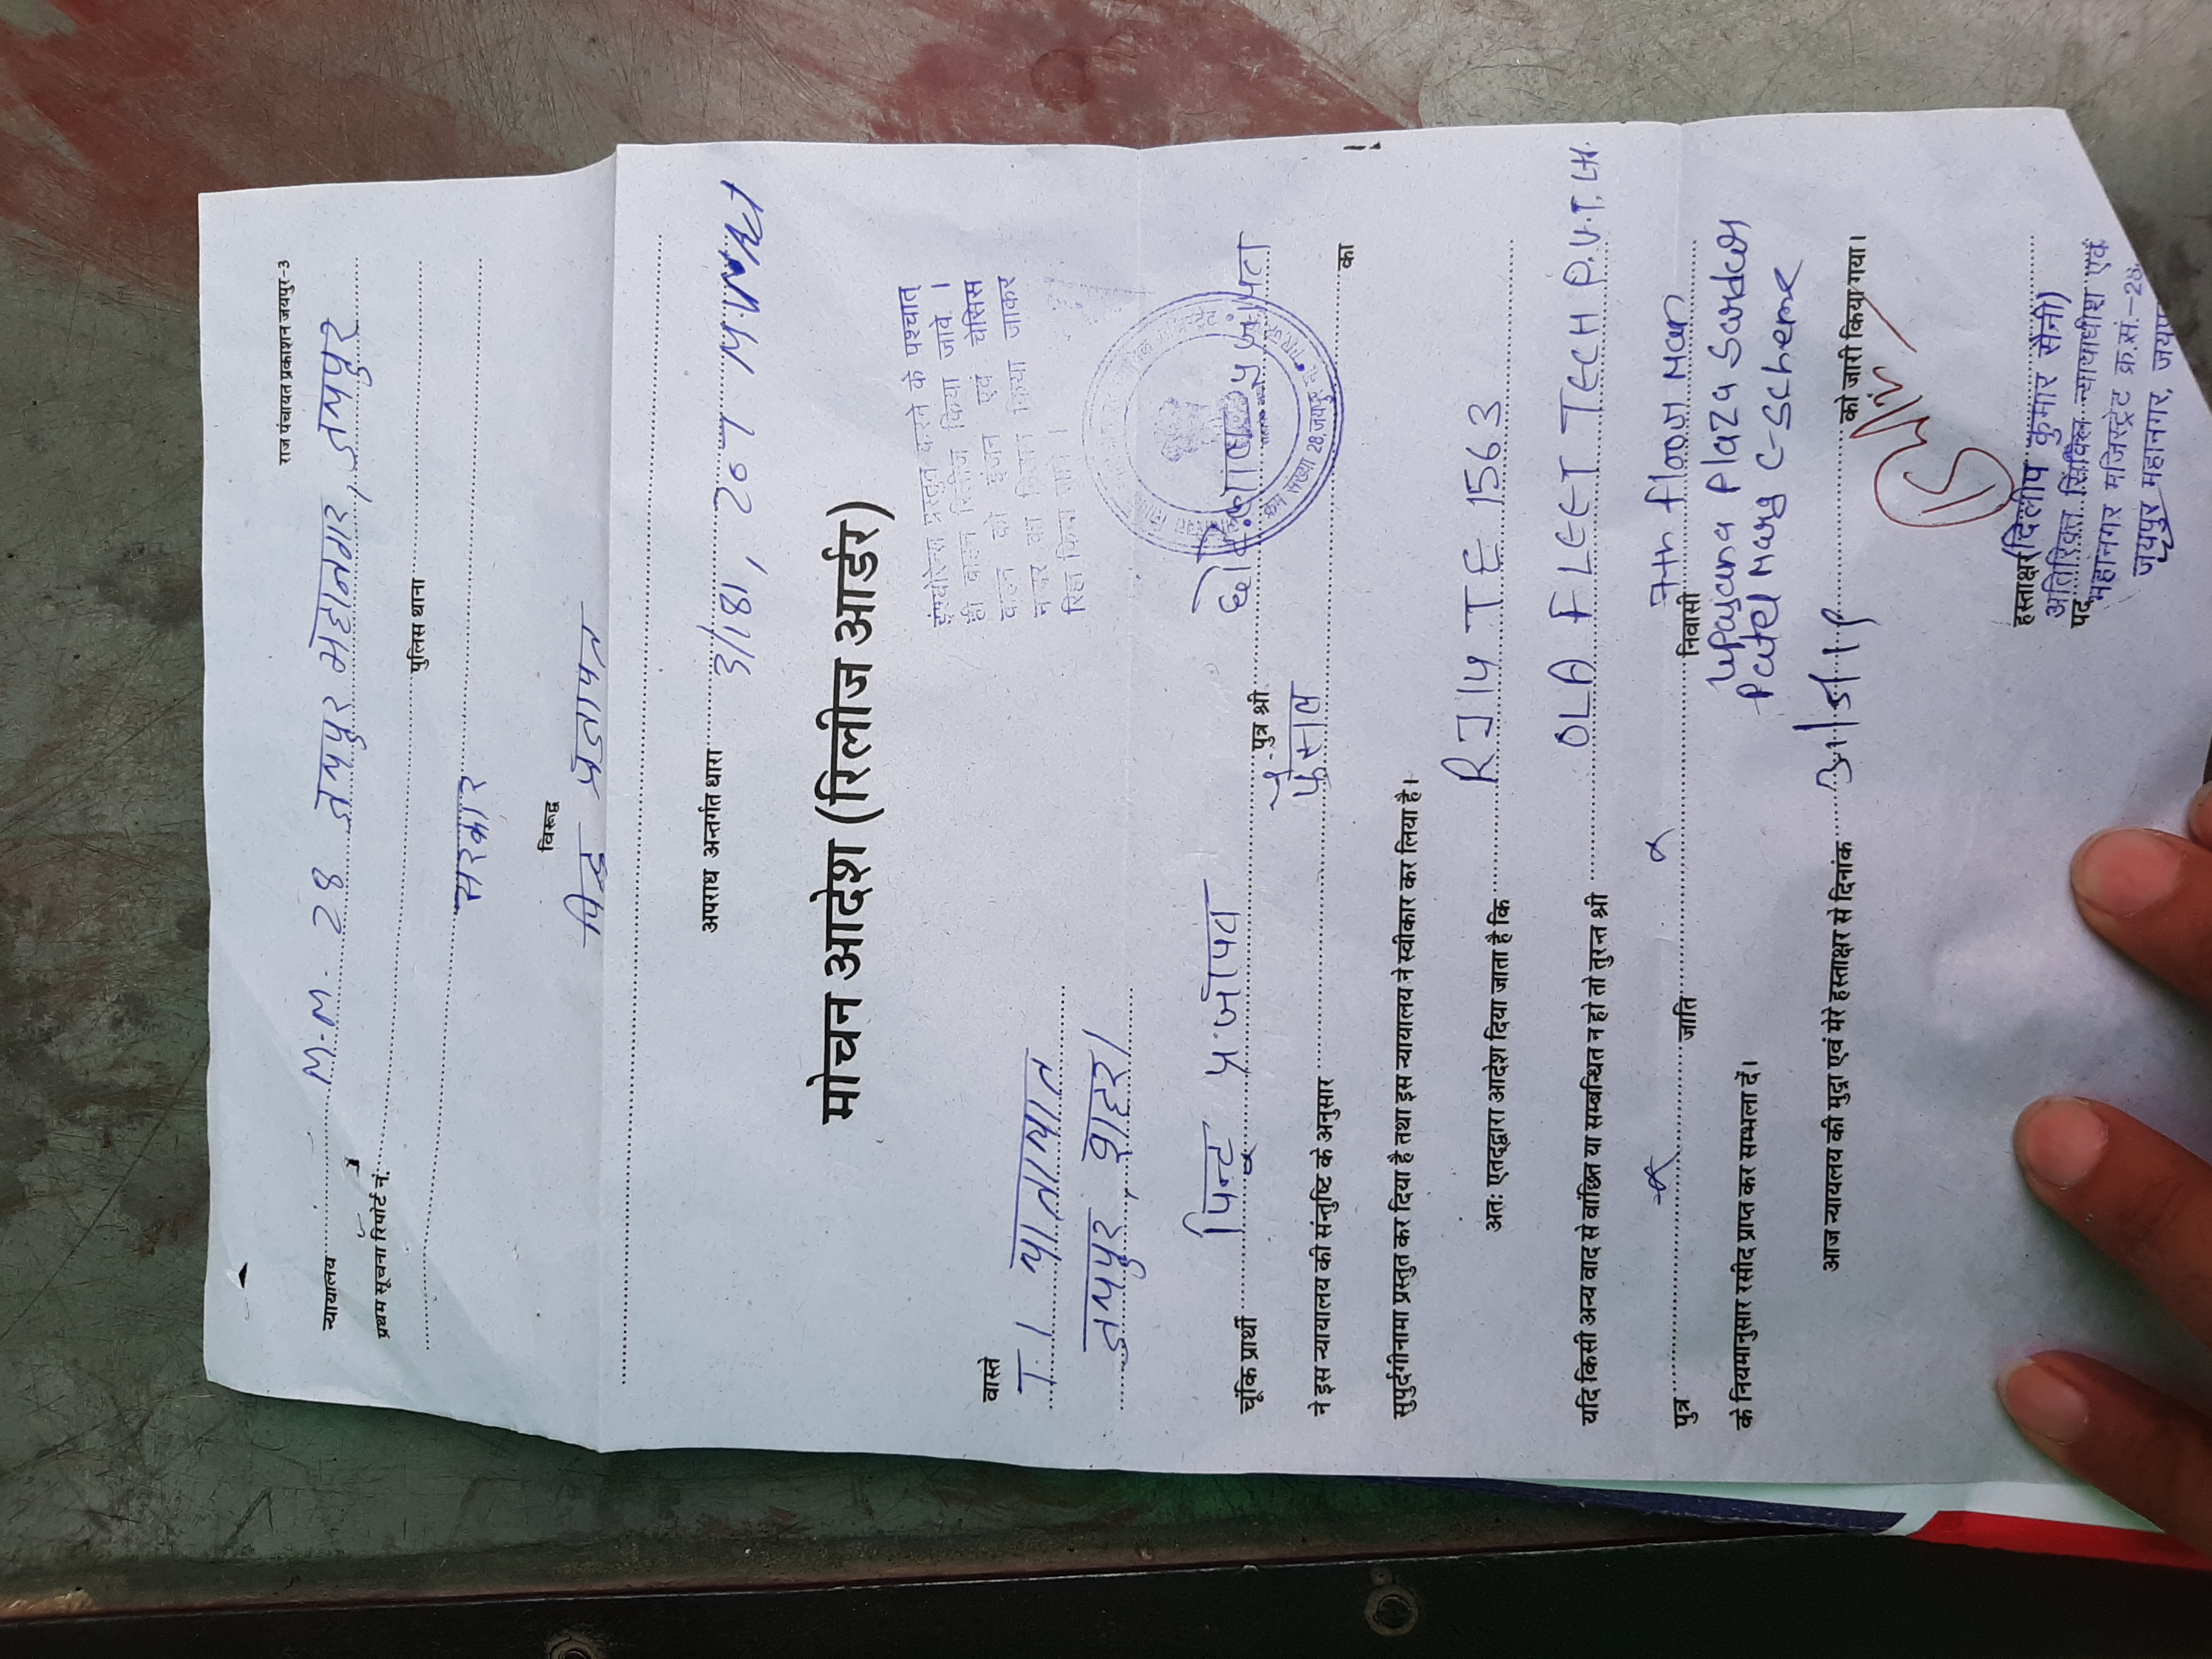 राज पंचायत प्रकाशन जयपुर-3
न्यायालय M.M. 28 जयपुर महानगर, जयपुर
प्रथम सूचना रिपोर्ट नं. पुलिस थाना
सरकार
विरूद्ध
प्रजापत
अपराध अन्तर्गत धारा 3/181, 207 M.V.Act
मोचन आदेश (रिलीज आर्डर)
इंश्योरेन्स प्रस्तुत करने के पश्चात्
ही वाहन रिलीज किया जावे ।
वाहन को इंजन एवं चेसिस
नम्बर का मिलान किया जाकर
रिलीज किया जावे ।
वास्ते
T.I यातायात
जयपुर, शहर।
चूंकि प्रार्थी पिन्टू पुत्र श्री
ने इस न्यायालय की संन्तुष्टि के अनुसार का
क्रम संख्या 28, जयपुर
सुपुर्दगीनामा प्रस्तुत कर दिया है तथा इस न्यायालय ने स्वीकार कर लिया है।
अतः एतद्द्वारा आदेश दिया जाता है कि RJ14 TE 1563
यदि किसी अन्य वाद से वांछित या सम्बन्धित न हो तो तुरन्त श्री OLA FLEET TECH P.V.T. Ltd.
पुत्र जाति निवासी 7th floor Man
Upayana Plaza Sardar
के नियमानुसार रसीद प्राप्त कर सम्भला दें।
Patel Marg C-Scheme
आज न्यायलय की मुद्रा एवं मेरे हस्ताक्षर से दिनांक को जारी किया गया।
हस्ताक्षर (दिलीप कुमार सैनी)
अतिरिक्त सिविल न्यायाधीश एवं
पद महानगर मजिस्ट्रेट क्र.सं.-28
जयपुर महानगर,